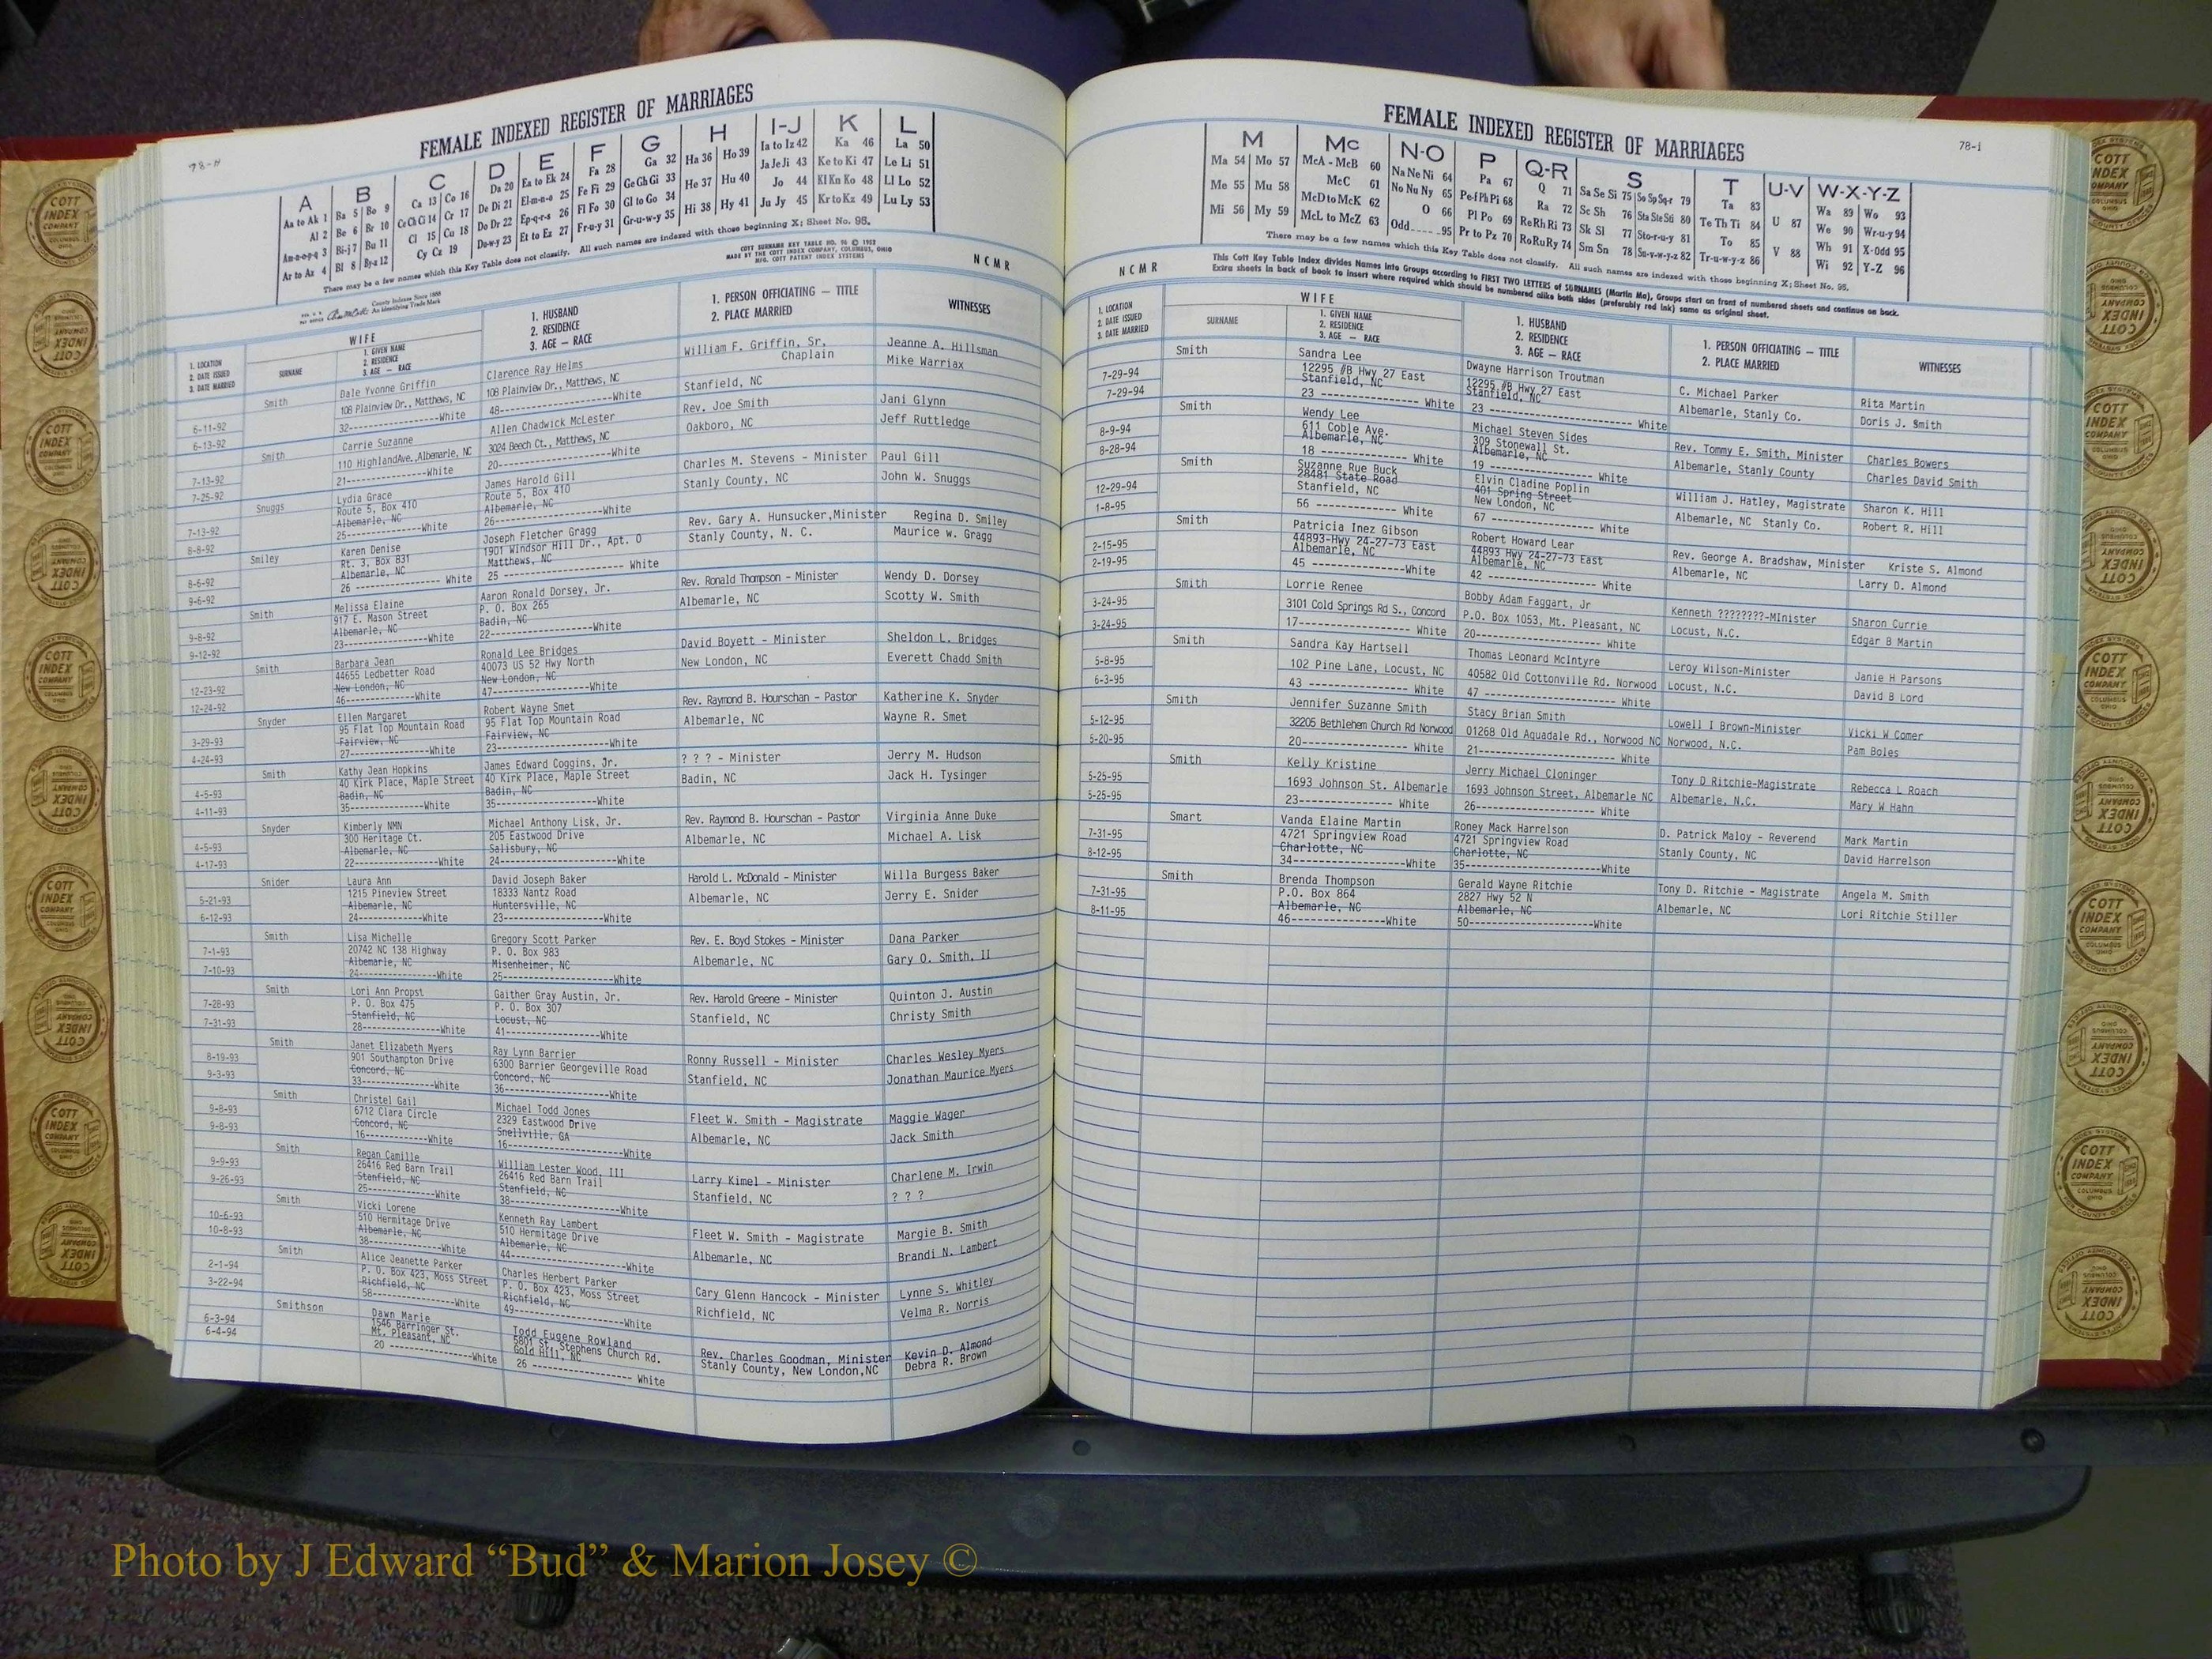 78-H
FEMALE INDEXED REGISTER OF MARRIAGES
A B C D E F G H I-J K L
Aa to Ak 1 Ba 5 Bo 9 Ca 13 Co 16 Da 20 Ea to Ek 24 Fa 28 Ga 32 Ha 36 Ho 39 Ia to Iz 42 Ka 46 La 50
Al 2 Be 6 Br 10 Ce Ch Ci 14 Cr 17 De Di 21 El-m-n-o 25 Fe Fi 29 Ge Gh Gi 33 He 37 Hu 40 Ja Je Ji 43 Ke to Ki 47 Le Li 51
Am-n-o-p-q 3 Bi-j 7 Bu 11 Cl 15 Cu 18 Do Dr 22 Ep-q-r-s 26 Fl Fo 30 Gl to Go 34 Hi 38 Hy 41 Jo 44 Kl Kn Ko 48 Ll Lo 52
Ar to Az 4 Bl 8 By-z 12 Cy Cz 19 Du-w-y 23 Et to Ez 27 Fr-u-y 31 Gr-u-w-y 35 Ju Jy 45 Kr to Kz 49 Lu Ly 53
There may be a few names which this Key Table does not classify. All such names are indexed with those beginning X; Sheet No. 95.
County Indexes Since 1888
An Identifying Trade Mark
COTT SURNAME KEY TABLE NO. 96 © 1952
MADE BY THE COTT INDEX COMPANY, COLUMBUS, OHIO
MFG. COTT PATENT INDEX SYSTEMS
NCMR
1. LOCATION
2. DATE ISSUED
3. DATE MARRIED
WIFE
SURNAME
1. GIVEN NAME
2. RESIDENCE
3. AGE — RACE
1. HUSBAND
2. RESIDENCE
3. AGE — RACE
1. PERSON OFFICIATING — TITLE
2. PLACE MARRIED
WITNESSES
Smith Dale Yvonne Griffin Clarence Ray Helms William F. Griffin, Sr. Chaplain Jeanne A. Hillsman
6-11-92 108 Plainview Dr., Matthews, NC 108 Plainview Dr., Matthews, NC Stanfield, NC Mike Warriax
6-13-92 32---White 48---White
Smith Carrie Suzanne Allen Chadwick McLester Rev. Joe Smith Jani Glynn
7-13-92 110 HighlandAve.,Albemarle, NC 3024 Beech Ct., Matthews, NC Oakboro, NC Jeff Ruttledge
7-25-92 21---White 20---White
Snuggs Lydia Grace James Harold Gill Charles M. Stevens - Minister Paul Gill
7-13-92 Route 5, Box 410 Route 5, Box 410 Stanly County, NC John W. Snuggs
8-8-92 Albemarle, NC Albemarle, NC
25---White 26---White
Smiley Karen Denise Joseph Fletcher Gragg Rev. Gary A. Hunsucker,Minister Regina D. Smiley
8-6-92 Rt. 3, Box 831 1901 Windsor Hill Dr., Apt. O Stanly County, N. C. Maurice w. Gragg
9-6-92 Albemarle, NC Matthews, NC
26 --- White 25 --- White
Smith Melissa Elaine Aaron Ronald Dorsey, Jr. Rev. Ronald Thompson - Minister Wendy D. Dorsey
9-8-92 917 E. Mason Street P. O. Box 265 Albemarle, NC Scotty W. Smith
9-12-92 Albemarle, NC Badin, NC
23---White 22---White
Smith Barbara Jean Ronald Lee Bridges David Boyett - Minister Sheldon L. Bridges
12-23-92 44655 Ledbetter Road 40073 US 52 Hwy North New London, NC Everett Chadd Smith
12-24-92 New London, NC New London, NC
46---White 47---White
Snyder Ellen Margaret Robert Wayne Smet Rev. Raymond B. Hourschan - Pastor Katherine K. Snyder
3-29-93 95 Flat Top Mountain Road 95 Flat Top Mountain Road Albemarle, NC Wayne R. Smet
4-24-93 Fairview, NC Fairview, NC
27---White 23---White
Smith Kathy Jean Hopkins James Edward Coggins, Jr. ? ? ? - Minister Jerry M. Hudson
4-5-93 40 Kirk Place, Maple Street 40 Kirk Place, Maple Street Badin, NC Jack H. Tysinger
4-11-93 Badin, NC Badin, NC
35---White 35---White
Snyder Kimberly NMN Michael Anthony Lisk, Jr. Rev. Raymond B. Hourschan - Pastor Virginia Anne Duke
4-5-93 300 Heritage Ct. 205 Eastwood Drive Albemarle, NC Michael A. Lisk
4-17-93 Albemarle, NC Salisbury, NC
22---White 24---White
Snider Laura Ann David Joseph Baker Harold L. McDonald - Minister Willa Burgess Baker
5-21-93 1215 Pineview Street 18333 Nantz Road Albemarle, NC Jerry E. Snider
6-12-93 Albemarle, NC Huntersville, NC
24---White 23---White
Smith Lisa Michelle Gregory Scott Parker Rev. E. Boyd Stokes - Minister Dana Parker
7-1-93 20742 NC 138 Highway P. O. Box 983 Albemarle, NC Gary O. Smith, II
7-10-93 Albemarle, NC Misenheimer, NC
24---White 25---White
Smith Lori Ann Propst Gaither Gray Austin, Jr. Rev. Harold Greene - Minister Quinton J. Austin
7-28-93 P. O. Box 475 P. O. Box 307 Stanfield, NC Christy Smith
7-31-93 Stanfield, NC Locust, NC
28---White 41---White
Smith Janet Elizabeth Myers Ray Lynn Barrier Ronny Russell - Minister Charles Wesley Myers
8-19-93 901 Southampton Drive 6300 Barrier Georgeville Road Stanfield, NC Jonathan Maurice Myers
9-3-93 Concord, NC Concord, NC
33---White 36---White
Smith Christel Gail Michael Todd Jones Fleet W. Smith - Magistrate Maggie Wager
9-8-93 6712 Clara Circle 2329 Eastwood Drive Albemarle, NC Jack Smith
9-8-93 Concord, NC Snellville, GA
16---White 16---White
Smith Regan Camille William Lester Wood, III Larry Kimel - Minister Charlene M. Irwin
9-9-93 26416 Red Barn Trail 26416 Red Barn Trail Stanfield, NC ? ? ?
9-26-93 Stanfield, NC Stanfield, NC
25---White 38---White
Smith Vicki Lorene Kenneth Ray Lambert Fleet W. Smith - Magistrate Margie B. Smith
10-6-93 510 Hermitage Drive 510 Hermitage Drive Albemarle, NC Brandi N. Lambert
10-8-93 Albemarle, NC Albemarle, NC
38---White 44---White
Smith Alice Jeanette Parker Charles Herbert Parker Cary Glenn Hancock - Minister Lynne S. Whitley
2-1-94 P. O. Box 423, Moss Street P. O. Box 423, Moss Street Richfield, NC Velma R. Norris
3-22-94 Richfield, NC Richfield, NC
58---White 49---White
Smithson Dawn Marie Todd Eugene Rowland Rev. Charles Goodman, Minister Kevin D. Almond
6-3-94 1546 Barringer St. 5801 St. Stephens Church Rd. Stanly County, New London,NC Debra R. Brown
6-4-94 Mt. Pleasant, NC Gold Hill, NC
20 ---White 26 --- White
78-i
FEMALE INDEXED REGISTER OF MARRIAGES
M Mc N-O P Q-R S T U-V W-X-Y-Z
Ma 54 Mo 57 McA - McB 60 Na Ne Ni 64 Pa 67 Q 71 Sa Se Si 75 So Sp Sq-r 79 Ta 83 U 87 Wa 89 Wo 93
Me 55 Mu 58 McC 61 No Nu Ny 65 Pe-f Ph Pi 68 Ra 72 Sc Sh 76 Sta Ste Sti 80 Te Th Ti 84 V 88 We 90 Wr-u-y 94
Mi 56 My 59 McD to McK 62 O 66 Pl Po 69 Re Rh Ri 73 Sk Sl 77 Sto-r-u-y 81 To 85 Wh 91 X-Odd 95
McL to McZ 63 Odd 95 Pr to Pz 70 Ro Ru Ry 74 Sm Sn 78 Su-v-w-y-z 82 Tr-u-w-y-z 86 Wi 92 Y-Z 96
There may be a few names which this Key Table does not classify. All such names are indexed with those beginning X; Sheet No. 95.
This Cott Key Table Index divides Names into Groups according to FIRST TWO LETTERS of SURNAMES (Martin Ma), Groups start on front of numbered sheets and continue on back.
Extra sheets in back of book to insert where required which should be numbered alike both sides (preferably red ink) same as original sheet.
NCMR
1. LOCATION
2. DATE ISSUED
3. DATE MARRIED
WIFE
SURNAME
1. GIVEN NAME
2. RESIDENCE
3. AGE — RACE
1. HUSBAND
2. RESIDENCE
3. AGE — RACE
1. PERSON OFFICIATING — TITLE
2. PLACE MARRIED
WITNESSES
Smith Sandra Lee Dwayne Harrison Troutman C. Michael Parker Rita Martin
7-29-94 12295 #B Hwy 27 East 12295 #B Hwy 27 East Albemarle, Stanly Co. Doris J. Smith
7-29-94 Stanfield, NC Stanfield, NC
23 --- White 23 --- White
Smith Wendy Lee Michael Steven Sides Rev. Tommy E. Smith, Minister Charles Bowers
8-9-94 611 Coble Ave. 309 Stonewall St. Albemarle, Stanly County Charles David Smith
8-28-94 Albemarle, NC Albemarle, NC
18 --- White 19 --- White
Smith Suzanne Rue Buck Elvin Cladine Poplin William J. Hatley, Magistrate Sharon K. Hill
12-29-94 28481 State Road 401 Spring Street Albemarle, NC Stanly Co. Robert R. Hill
1-8-95 Stanfield, NC New London, NC
56 --- White 67 --- White
Smith Patricia Inez Gibson Robert Howard Lear Rev. George A. Bradshaw, Minister Kriste S. Almond
2-15-95 44893-Hwy 24-27-73 East 44893 Hwy 24-27-73 East Albemarle, NC Larry D. Almond
2-19-95 Albemarle, NC Albemarle, NC
45 ---White 42 --- White
Smith Lorrie Renee Bobby Adam Faggart, Jr Kenneth ????????-MInister Sharon Currie
3-24-95 3101 Cold Springs Rd S., Concord P.O. Box 1053, Mt. Pleasant, NC Locust, N.C. Edgar B Martin
3-24-95 17--- White 20--- White
Smith Sandra Kay Hartsell Thomas Leonard McIntyre Leroy Wilson-Minister Janie H Parsons
5-8-95 102 Pine Lane, Locust, NC 40582 Old Cottonville Rd. Norwood Locust, N.C. David B Lord
6-3-95 43 --- White 47 --- White
Smith Jennifer Suzanne Smith Stacy Brian Smith Lowell I Brown-Minister Vicki W Comer
5-12-95 32205 Bethlehem Church Rd Norwood 01268 Old Aquadale Rd., Norwood NC Norwood, N.C. Pam Boles
5-20-95 20--- White 21--- White
Smith Kelly Kristine Jerry Michael Cloninger Tony D Ritchie-Magistrate Rebecca L Roach
5-25-95 1693 Johnson St. Albemarle 1693 Johnson Street, Albemarle NC Albemarle, N.C. Mary W Hahn
5-25-95 23--- White 26--- White
Smart Vanda Elaine Martin Roney Mack Harrelson D. Patrick Maloy - Reverend Mark Martin
7-31-95 4721 Springview Road 4721 Springview Road Stanly County, NC David Harrelson
8-12-95 Charlotte, NC Charlotte, NC
34---White 35---White
Smith Brenda Thompson Gerald Wayne Ritchie Tony D. Ritchie - Magistrate Angela M. Smith
7-31-95 P.O. Box 864 2827 Hwy 52 N Albemarle, NC Lori Ritchie Stiller
8-11-95 Albemarle, NC Albemarle, NC
46---White 50---White
COTT INDEX COMPANY COLUMBUS OHIO
Photo by J Edward “Bud” & Marion Josey ©